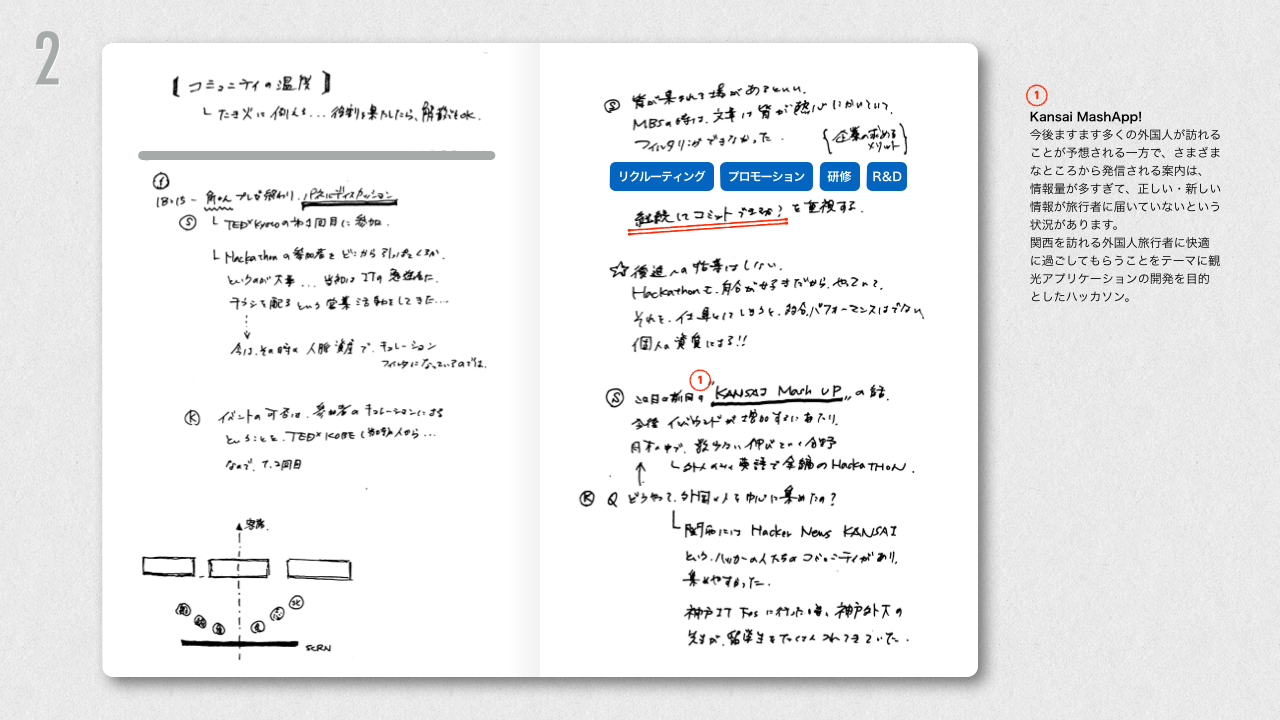 2
【コミュニティの温度】
└ たき火に例える... 役割を果たしたら、解散もOK.
①
18:15 - プレゼ終わり、パネルディスカッション
Ⓢ └ TEDxKyotoの第1回目に参加.
└ Hackathonの参加者をどこから引っぱってくるか
というのが大事... 当初はITの勉強会に
チラシを配るという営業活動をしてきた...
今は、その時の人脈資産で、キュレーション
フィルタになっているのでは.
Ⓚ イベントの可否は、参加者のキュレーションによる
ということを、TEDxKOBE
なので、1、2回目
客席
SCRN
Ⓢ 皆が集まれる場があるといい.
MBSの時は、文章に皆が熱心にかいていて、
フィルタリングできなかった.
{企業が求めるメリット}
リクルーティング プロモーション 研修 R&D
継続してコミットできるか?を重視する.
☆後進への指導はしない.
Hackathonも、自分が好きだから、やっていて、
それを、仕事にしてしまうと、パフォーマンスはでない
個人の資質による!!
1
Ⓢ この日の前日の "KANSAI Mash UP" の話.
今後 インバウンドが増加するにあたり、
日本の中で、数少ない伸びていく分野
└ 外人のみの英語で全編のHackATHON.
Ⓚ Q どうやって、外国の人を中心に集めたの?
└ 関西には Hacker News KANSAI
という、ハッカーの人たちのコミュニティがあり、
集めやすかった.
神戸IT Fesに行った時、神戸外大の
先生が、留学生をたくさんつれてきていた.
1
Kansai MashApp!
今後ますます多くの外国人が訪れる
ことが予想される一方で、さまざま
なところから発信される案内は、
情報量が多すぎて、正しい・新しい
情報が旅行者に届いていないという
状況があります。
関西を訪れる外国人旅行者に快適
に過ごしてもらうことをテーマに観
光アプリケーションの開発を目的
としたハッカソン。